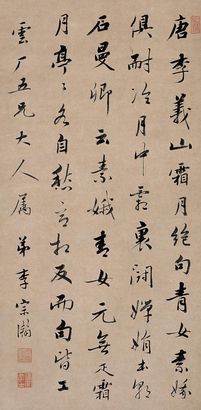 唐李義山霜月絕句青女素娥
俱耐冷月中霜裏鬪嬋娟本朝
石曼卿云素娥青女元無匹霜
月亭〻各自愁意相反而句皆工
雲厂五兄大人屬 弟李宗瀚